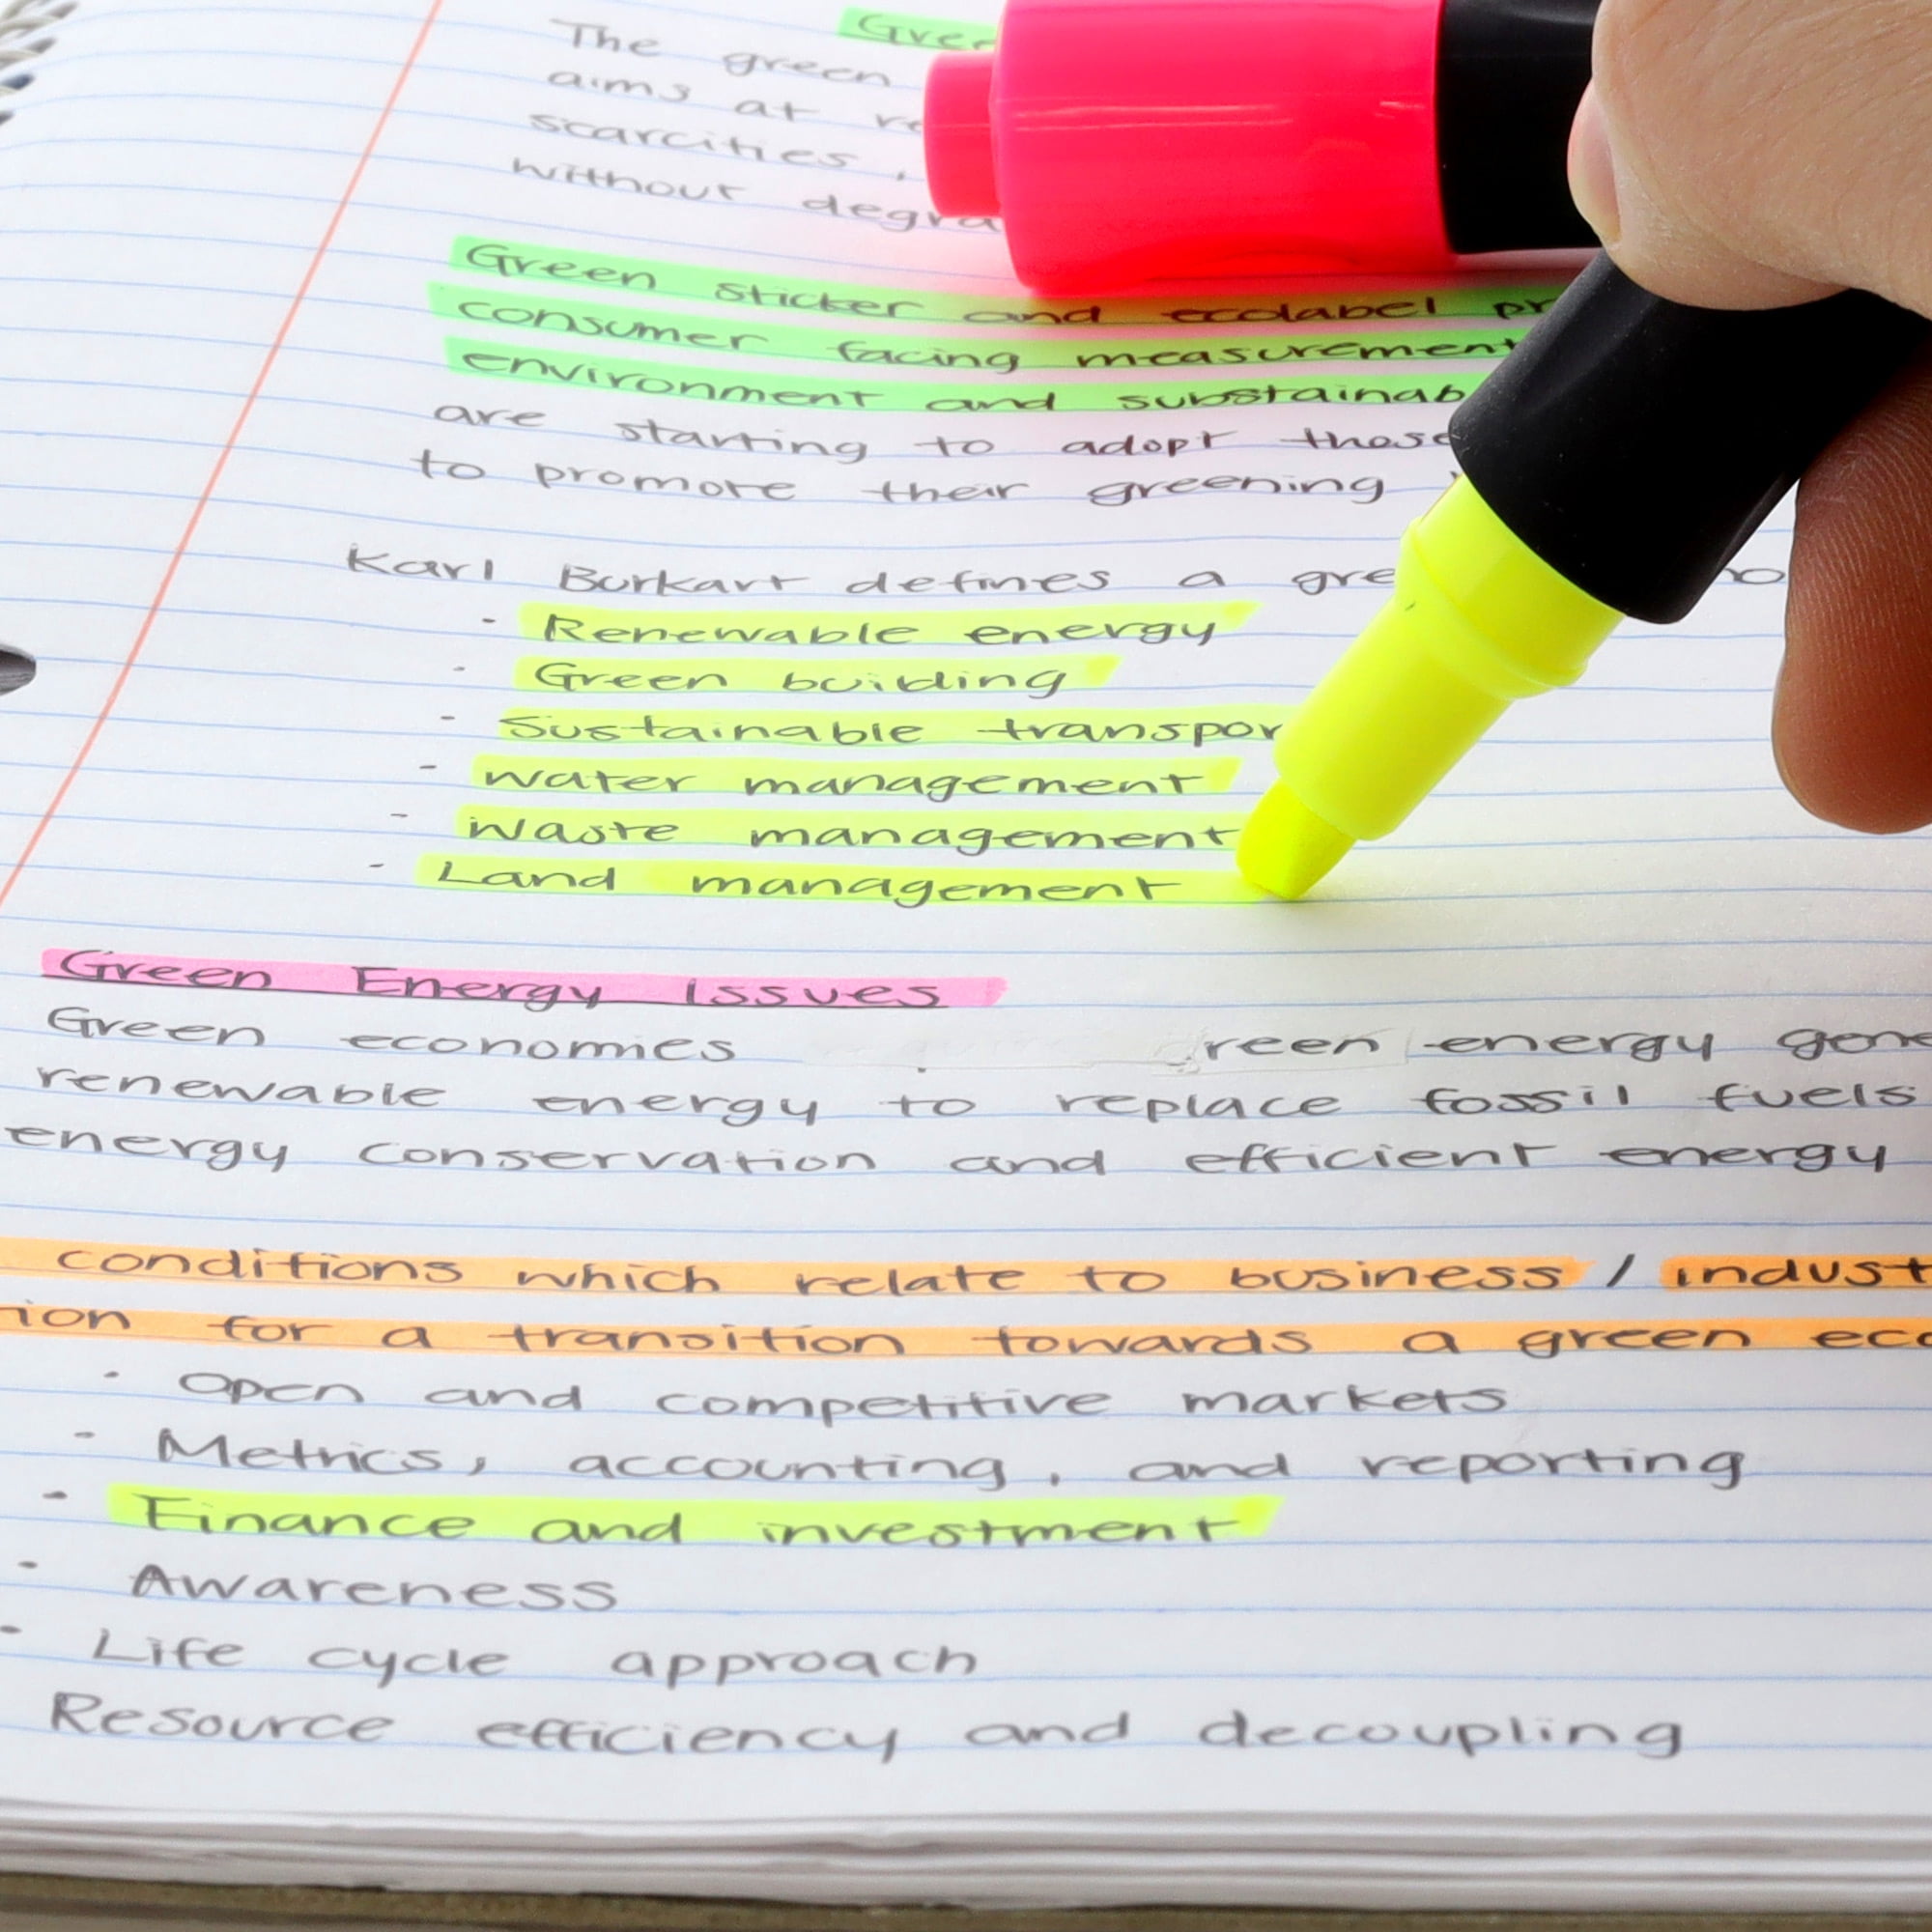 Green
The green
aims at re
scarcities,
without degra
Green sticker and ecolabel pr
consumer facing measurement
environment and substainab
are starting to adopt these
to promote their greening
Karl Burkart defines a gre
- Renewable energy
- Green building
- Sustainable transpor
- water management
- Waste management
- Land management
Green Energy Issues
Green economies reen energy gene
renewable energy to replace fossil fuels
energy conservation and efficient energy
conditions which relate to business / indust
ion for a transition towards a green eco
- Open and competitive markets
- Metrics, accounting, and reporting
- Finance and investment
- Awareness
- Life cycle approach
Resource efficiency and decoupling